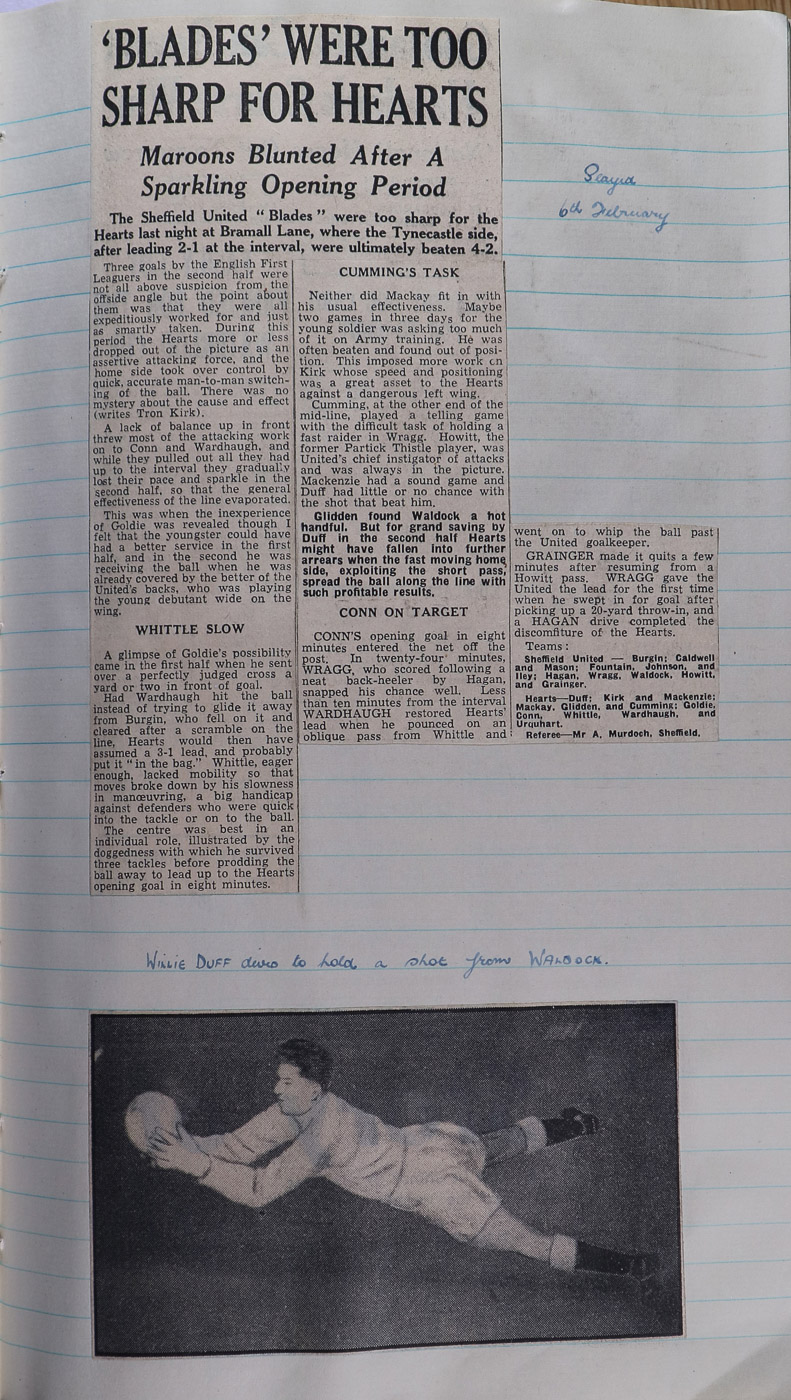 'BLADES' WERE TOO
SHARP FOR HEARTS
Maroons Blunted After A
Sparkling Opening Period
The Sheffield United "Blades" were too sharp for the
Hearts last night at Bramall Lane, where the Tynecastle side,
after leading 2-1 at the interval, were ultimately beaten 4-2.
Three goals by the English First
Leaguers in the second half were
not all above suspicion from the
offside angle but the point about
them was that they were all
expeditiously worked for and just
as smartly taken. During this
period the Hearts more or less
dropped out of the picture as an
assertive attacking force, and the
home side took over control by
quick, accurate man-to-man switch-
ing of the ball. There was no
mystery about the cause and effect
(writes Tron Kirk).
A lack of balance up in front
threw most of the attacking work
on to Conn and Wardhaugh, and
while they pulled out all they had
up to the interval they gradually
lost their pace and sparkle in the
second half, so that the general
effectiveness of the line evaporated.
This was when the inexperience
of Goldie was revealed though I
felt that the youngster could have
had a better service in the first
half, and in the second he was
receiving the ball when he was
already covered by the better of the
United's backs, who was playing
the young debutant wide on the
wing.
WHITTLE SLOW
A glimpse of Goldie's possibility
came in the first half when he sent
over a perfectly judged cross a
yard or two in front of goal.
Had Wardhaugh hit the ball
instead of trying to glide it away
from Burgin, who fell on it and
cleared after a scramble on the
line, Hearts would then have
assumed a 3-1 lead, and probably
put it "in the bag." Whittle, eager
enough, lacked mobility so that
moves broke down by his slowness
in manœuvring, a big handicap
against defenders who were quick
into the tackle or on to the ball.
The centre was best in an
individual role, illustrated by the
doggedness with which he survived
three tackles before prodding the
ball away to lead up to the Hearts
opening goal in eight minutes.
CUMMING'S TASK
Neither did Mackay fit in with
his usual effectiveness. Maybe
two games in three days for the
young soldier was asking too much
of it on Army training. He was
often beaten and found out of posi-
tion. This imposed more work on
Kirk whose speed and positioning
was a great asset to the Hearts
against a dangerous left wing.
Cumming, at the other end of the
mid-line, played a telling game
with the difficult task of holding a
fast raider in Wragg. Howitt, the
former Partick Thistle player, was
United's chief instigator of attacks
and was always in the picture.
Mackenzie had a sound game and
Duff had little or no chance with
the shot that beat him.
Glidden found Waldock a hot
handful. But for grand saving by
Duff in the second half Hearts
might have fallen into further
arrears when the fast moving home
side, exploiting the short pass,
spread the ball along the line with
such profitable results.
CONN ON TARGET
CONN'S opening goal in eight
minutes entered the net off the
post. In twenty-four minutes,
WRAGG, who scored following a
neat back-heeler by Hagan,
snapped his chance well. Less
than ten minutes from the interval
WARDHAUGH restored Hearts'
lead when he pounced on an
oblique pass from Whittle and
went on to whip the ball past
the United goalkeeper.
GRAINGER made it quits a few
minutes after resuming from a
Howitt pass. WRAGG gave the
United the lead for the first time
when he swept in for goal after
picking up a 20-yard throw-in, and
a HAGAN drive completed the
discomfiture of the Hearts.
Teams:
Sheffield United — Burgin; Caldwell
and Mason; Fountain, Johnson, and
Iley; Hagan, Wragg, Waldock, Howitt,
and Grainger.
Hearts—Duff; Kirk and Mackenzie;
Mackay, Glidden, and Cumming; Goldie,
Conn, Whittle, Wardhaugh, and
Urquhart.
Referee—Mr A. Murdoch, Sheffield.
Played
6th February
WILLIE DUFF dives to hold a shot from WALDOCK.